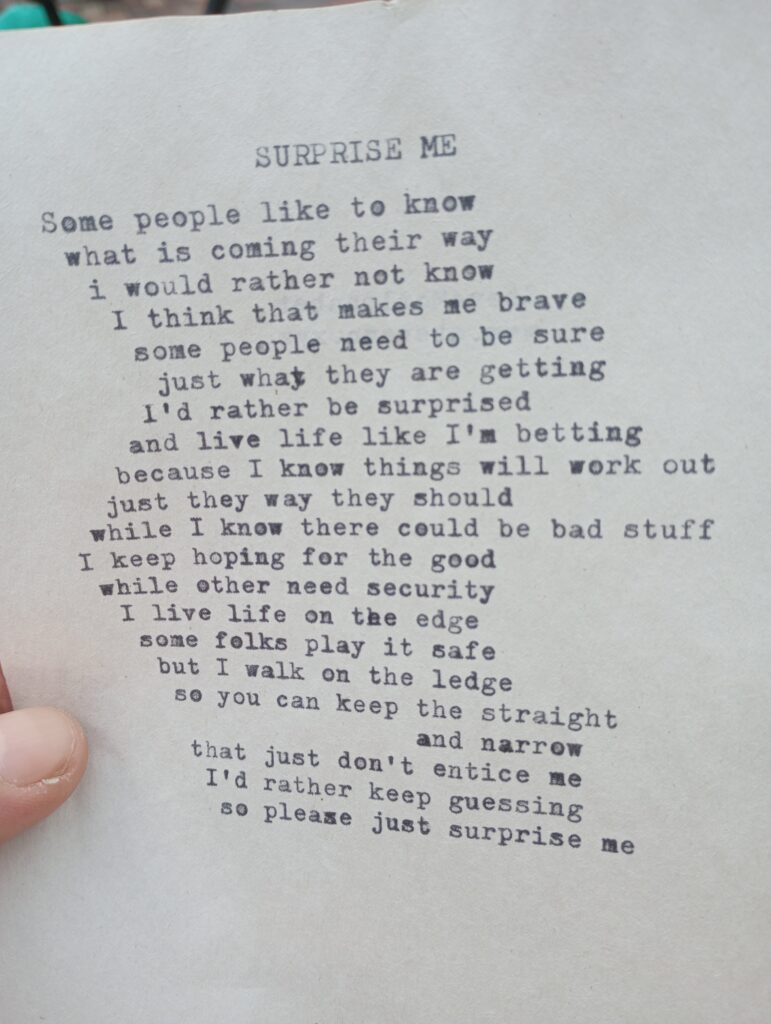 SURPRISE ME
Some people like to know
what is coming their way
i would rather not know
I think that makes me brave
some people need to be sure
just what they are getting
I'd rather be surprised
and live life like I'm betting
because I know things will work out
just they way they should
while I know there could be bad stuff
I keep hoping for the good
while other need security
I live life on the edge
some folks play it safe
but I walk on the ledge
so you can keep the straight
and narrow
that just don't entice me
I'd rather keep guessing
so please just surprise me